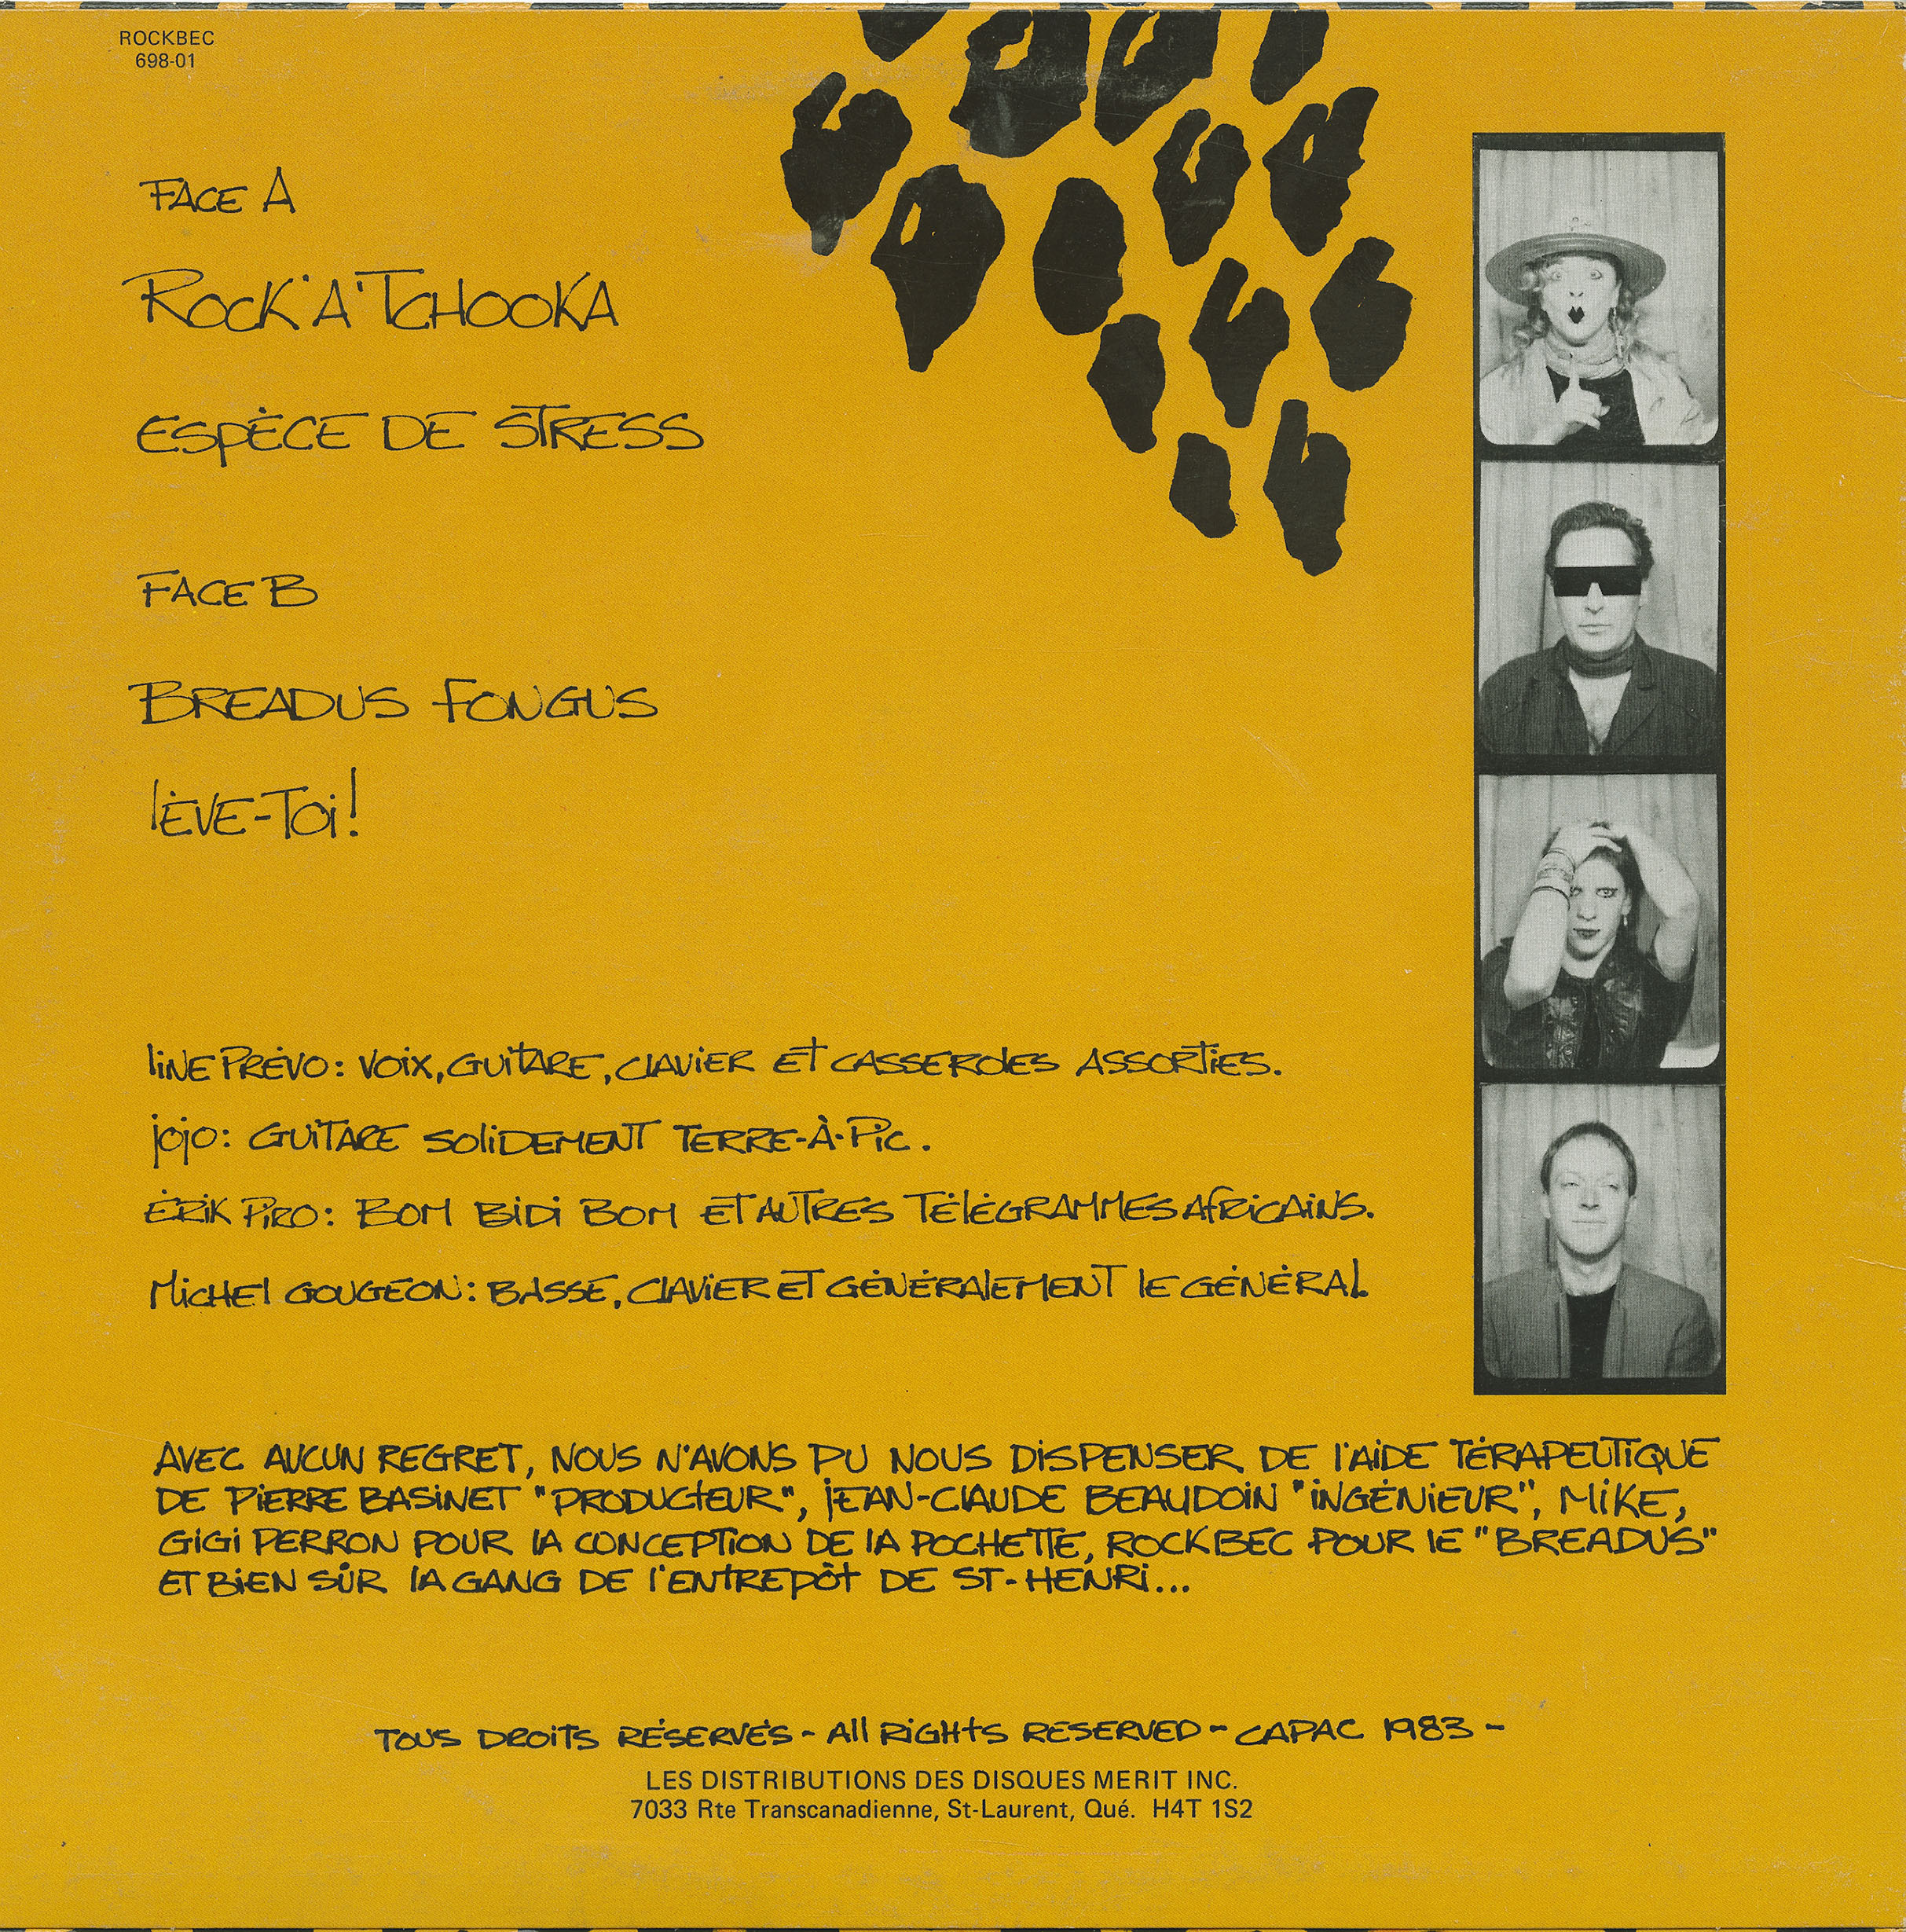 ROCKBEC
698-01
FACE A
ROCK'A'TCHOOKA
ESPÈCE DE STRESS
FACE B
BREADUS FONGUS
LÈVE-TOI!
LINE PRÉVO: VOIX, GUITARE, CLAVIER ET CASSEROLES ASSORTIES.
JOJO: GUITARE SOLIDEMENT TERRE-À-PIC.
ÉRIK PIRO: BOM BIDI BOM ET AUTRES TÉLÉGRAMMES AFRICAINS.
MICHEL GOUGEON: BASSE, CLAVIER ET GÉNÉRALEMENT LE GÉNÉRAL.
AVEC AUCUN REGRET, NOUS N'AVONS PU NOUS DISPENSER DE L'AIDE TÉRAPEUTIQUE
DE PIERRE BASINET "PRODUCTEUR", JEAN-CLAUDE BEAUDOIN "INGÉNIEUR", MIKE,
GIGI PERRON POUR LA CONCEPTION DE LA POCHETTE, ROCKBEC POUR LE "BREADUS"
ET BIEN SÛR LA GANG DE L'ENTREPÔT DE ST-HENRI...
TOUS DROITS RÉSERVÉS - ALL RIGHTS RESERVED - CAPAC 1983 -
LES DISTRIBUTIONS DES DISQUES MERIT INC.
7033 Rte Transcanadienne, St-Laurent, Qué. H4T 1S2